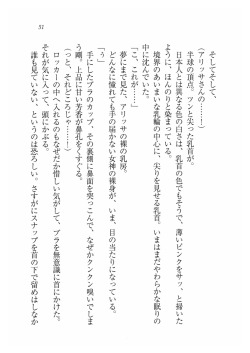 51
そしてそして、
（アリッサさんの……！）
半球の頂点。ツンと尖った乳首が。
日本人とは異なる色の白さは、乳首の色でもそうで、薄いピンクをサッ、と掃いた
ように、ほんのりと染まっている。
境界のあいまいな乳輪の中心に、尖りを見せる乳首。いまはまだやわらかな眠りの
中に沈んでいた。
「こ、これが……」
夢にまで見た、アリッサの裸の乳房。
どんなに憧れても手の届かない女神の裸身が、いま、目の当たりになっている。
「う」
手にしたブラのカップ。その裏側に鼻面を突っこんで、なぜかクンクン嗅いでしま
う剛。上品に甘い芳香が鼻孔をくすぐる。
（っと、それどころじゃ……！）
ロッカーの中へ入れるのもなぜだか惜しい気がして、ブラを無意識に首にかけた。
それが気に入って、頭にかぶる。
誰も見ていない、というのは恐ろしい。さすがにスナップを首の下で留めはしなか